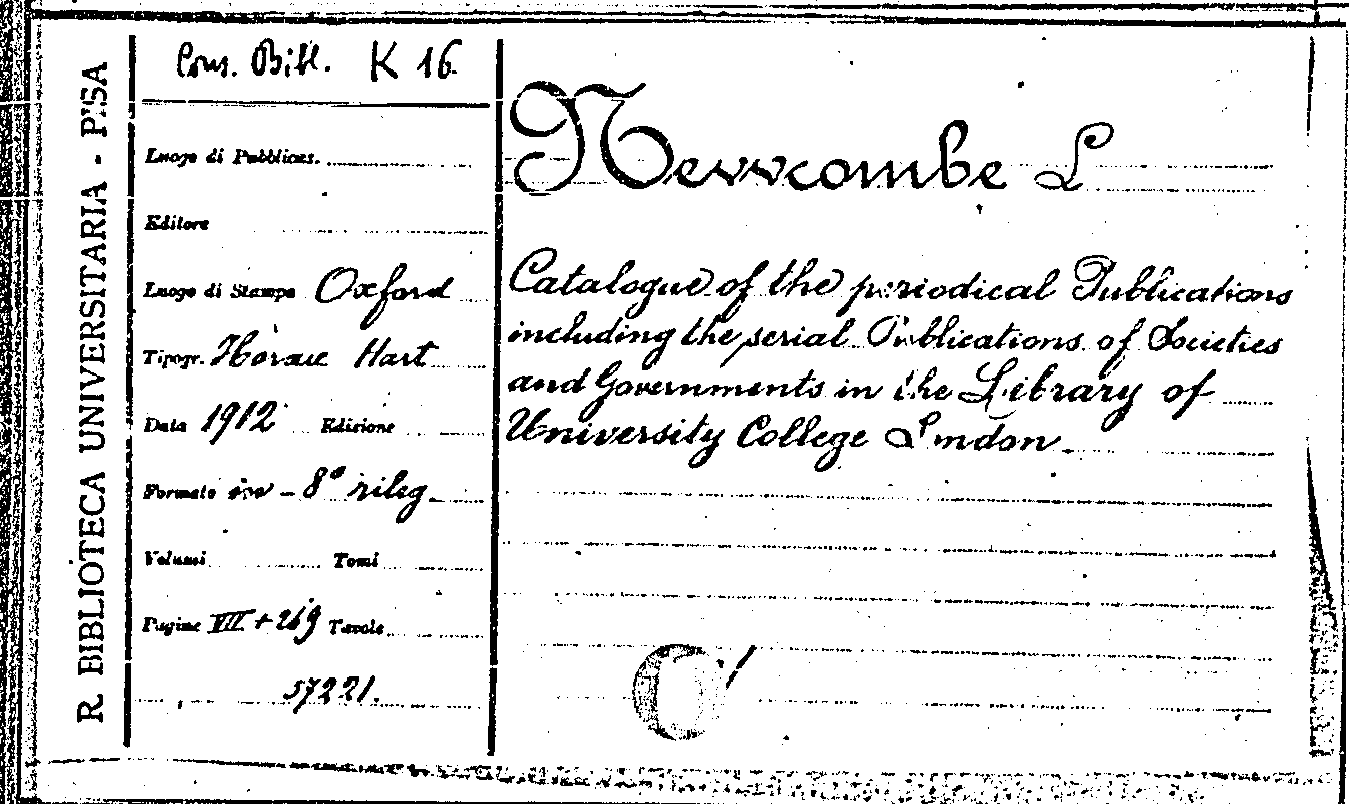 R. BIBLIOTECA UNIVERSITARIA - PISA
Cons. Bibl. K 16.
Luogo di Pubblicaz.
Editore
Luogo di Stampa Oxford
Tipogr. Horace Hart
Data 1912 Edizione
Formato in - 8° rileg
Volumi Tomi
Pagine VII + 269 Tavole
57221.
Newcombe L
Catalogue of the periodical Publications
including the serial Publications of Societies
and Governments in the Library of
University College London